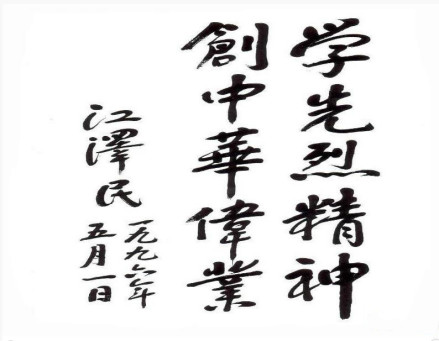 学先烈精神
創中華偉業
江澤民
一九九六年
五月一日